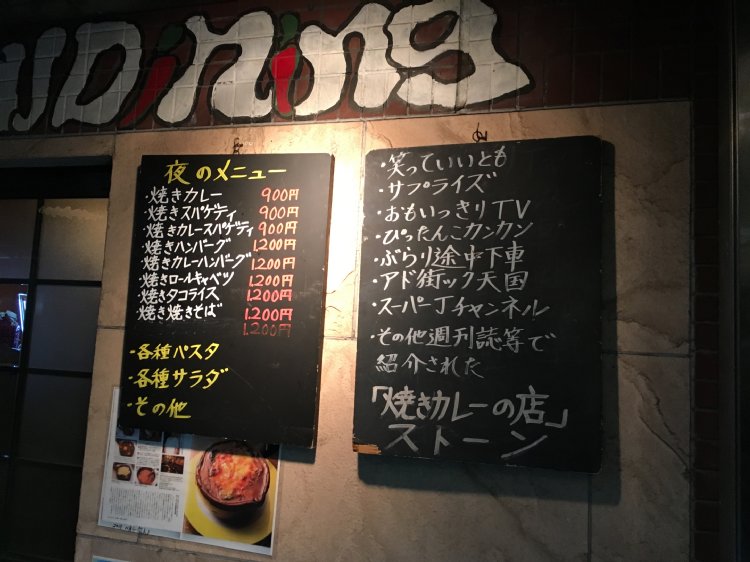 Dining
夜のメニュー
・焼きカレー 900円
・焼きスパゲティ 900円
・焼きカレースパゲティ 900円
・焼きハンバーグ 1,200円
・焼きカレーハンバーグ 1,200円
・焼きロールキャベツ 1,200円
・焼きタコライス 1,200円
・焼き焼きそば 1,200円
1,200円
・各種パスタ
・各種サラダ
・その他
・笑っていいとも
・サプライズ
・おもいっきりTV
・ぴったんこカンカン
・ぶらり途中下車
・アド街ック天国
・スーパーJチャンネル
・その他週刊誌等で
紹介された
「焼きカレーの店」
ストーン